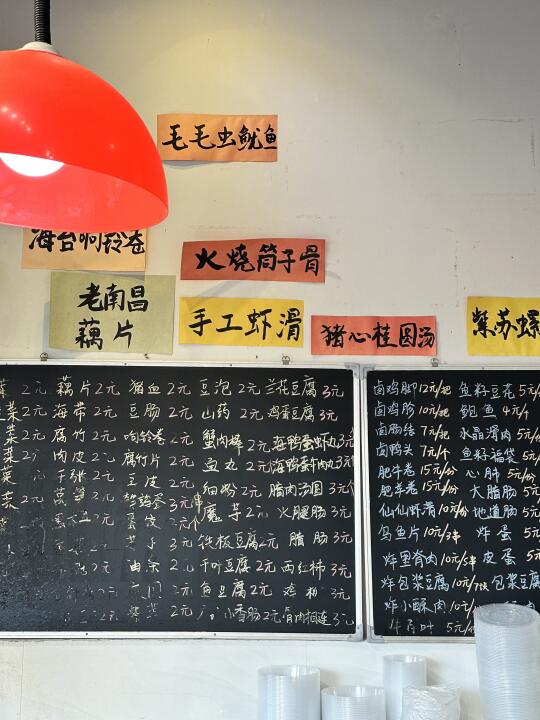 毛毛虫鱿鱼
海苔响铃卷
火烧筒子骨
老南昌
藕片
手工虾滑
猪心桂圆汤
紫苏螺
2元 藕片2元 猪血2元 豆泡2元 兰花豆腐3元
菜2元 海带2元 豆肠2元 山药2元 鸡蛋豆腐3元
菜2元 腐竹2元 响铃卷2元 蟹肉棒2元 海鸭蛋虾丸3元
菜2元 肉皮2元 腐竹片2元 鱼丸2元 海鸭蛋牛肉丸3元
菜 千张2元 豆皮2元 细粉2元 腊肉汤圆3元
菜 莴笋2元 鹌鹑蛋3元串 魔芋2元 火腿肠3元
2元 3元 铁板豆腐2元 腊肠3元
3元 千叶豆腐2元 西红柿3元
2元 鱼豆腐2元 3元
2元 小香肠2元 骨肉相连3元
卤鸡脚12元/把 鱼籽豆花5元
卤鸡肠10元/把 鲍鱼9元/个
卤肠结7元/把 水晶滑肉5元
卤鸭头7元/个 鱼籽福袋5元
肥牛卷15元/份 心肺5元/
肥羊卷15元/份 大脑肠5元
仙仙虾滑10元/份 地道肠5元
乌鱼片10元/串 炸蛋5元
炸里脊肉10元/5串 皮蛋5元
炸包浆豆腐10元/7块 包浆豆腐
炸小酥肉10元/
牛百叶5元/份